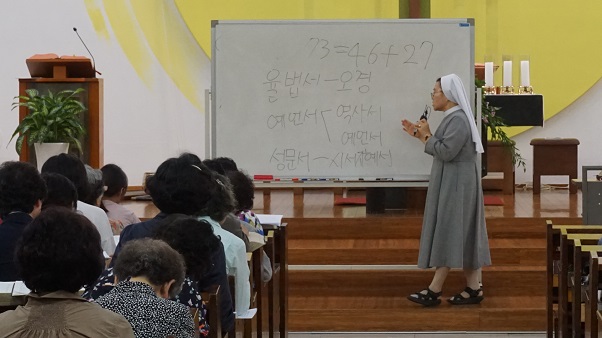 73=46+27
율법서 – 오경
예언서 < 역사서
예언서
성문서 –